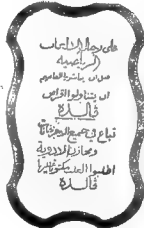 على رجال الالعاب
الرياضية
قبل ان يباشروا العابهم
ان يتناولوا اقراص
ڤالدة
تباع في جميع الاجزخانات
ومخازن الادوية
اطلبوا العلب مكتوب عليها
ڤالدة